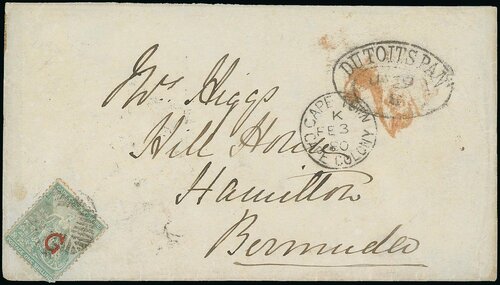 DUTOITSPAN
JA 29
CAPE TOWN
K
FE 3
80
CAPE COLONY
Mrs Higgs
Hill House
Hamilton
Bermuda
G